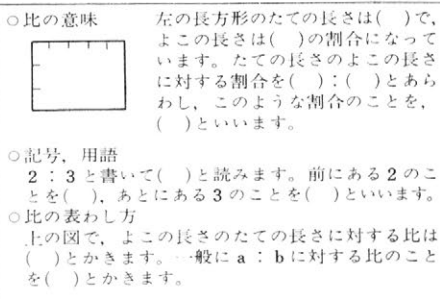 ○比の意味
左の長方形のたての長さは( )で,
よこの長さは( )の割合になって
います。たての長さのよこの長さ
に対する割合を( ):( )とあら
わし, このような割合のことを,
( )といいます。
○記号, 用語
2:3と書いて( )と読みます。前にある2のこ
とを( ), あとにある3のことを( )といいます。
○比の表わし方
上の図で, よこの長さのたての長さに対する比は
( )とかきます。一般にa:bに対する比のこと
を( )とかきます。